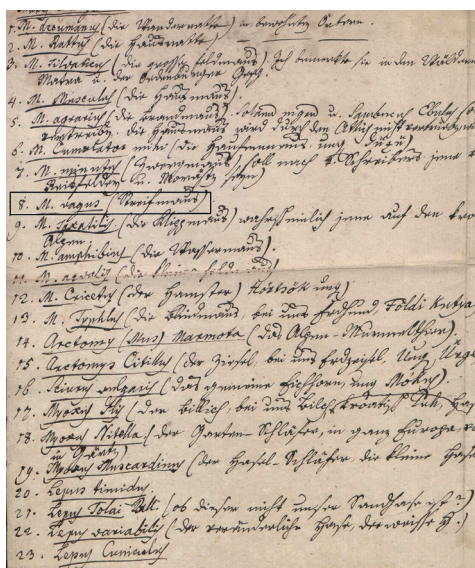 1. M. decumanus (die Wanderratte) in bewohnten Orten.
2. M. Rattus (die Hausratte)
3. M. sylvaticus (die grosse Feldmaus) Ich bemerkte sie in den Wäldern
Matra u. der Oedenburger Gesp.
4. M. Musculus (die Hausmaus)
5. M. agrarius (die Brandmaus)
die Hausmaus wird durch den
6. M. Cumulator mihi (die Haufenmaus. ung
7. M. minutus (Zwergmaus, soll nach
u.
8. M. vagus (Streifmaus)
9. M. saxatilis (die Klippmaus) wahrscheinlich jene auf den
Alpen
10. M. amphibius (die Wassermaus).
11. M. arvalis (die kleine Feldmaus)
12. M. Cricetus (der Hamster) Hörtsök ung)
13. M. Typhlus (die Blindmaus, bei uns Erdhund, Földi Kutya,
14. Arctomys (Mus) Marmota (das Alpen-Murmelthier).
15. Arctomys Citillus (der Ziesel, bei uns Erdzeisel. Ung. Ürge
16. Sciurus vulgaris (das gemeine Eichhorn, ung Mókus).
17. Myoxus Glis (der Billich, bei uns Bilch, kroatisch Puh,
18. Myoxus Nitella (der Garten-Schläfer, in ganz Europa,
in
19. Myoxus Muscardinus (der Hasel-Schläfer, die kleine Hasel
20. Lepus timidus.
21. Lepus Tolai Pall. (ob dieser nicht unser Sandhase ist?)
22. Lepus variabilis (der veränderliche Hase, der weisse H.)
23. Lepus Cuniculus